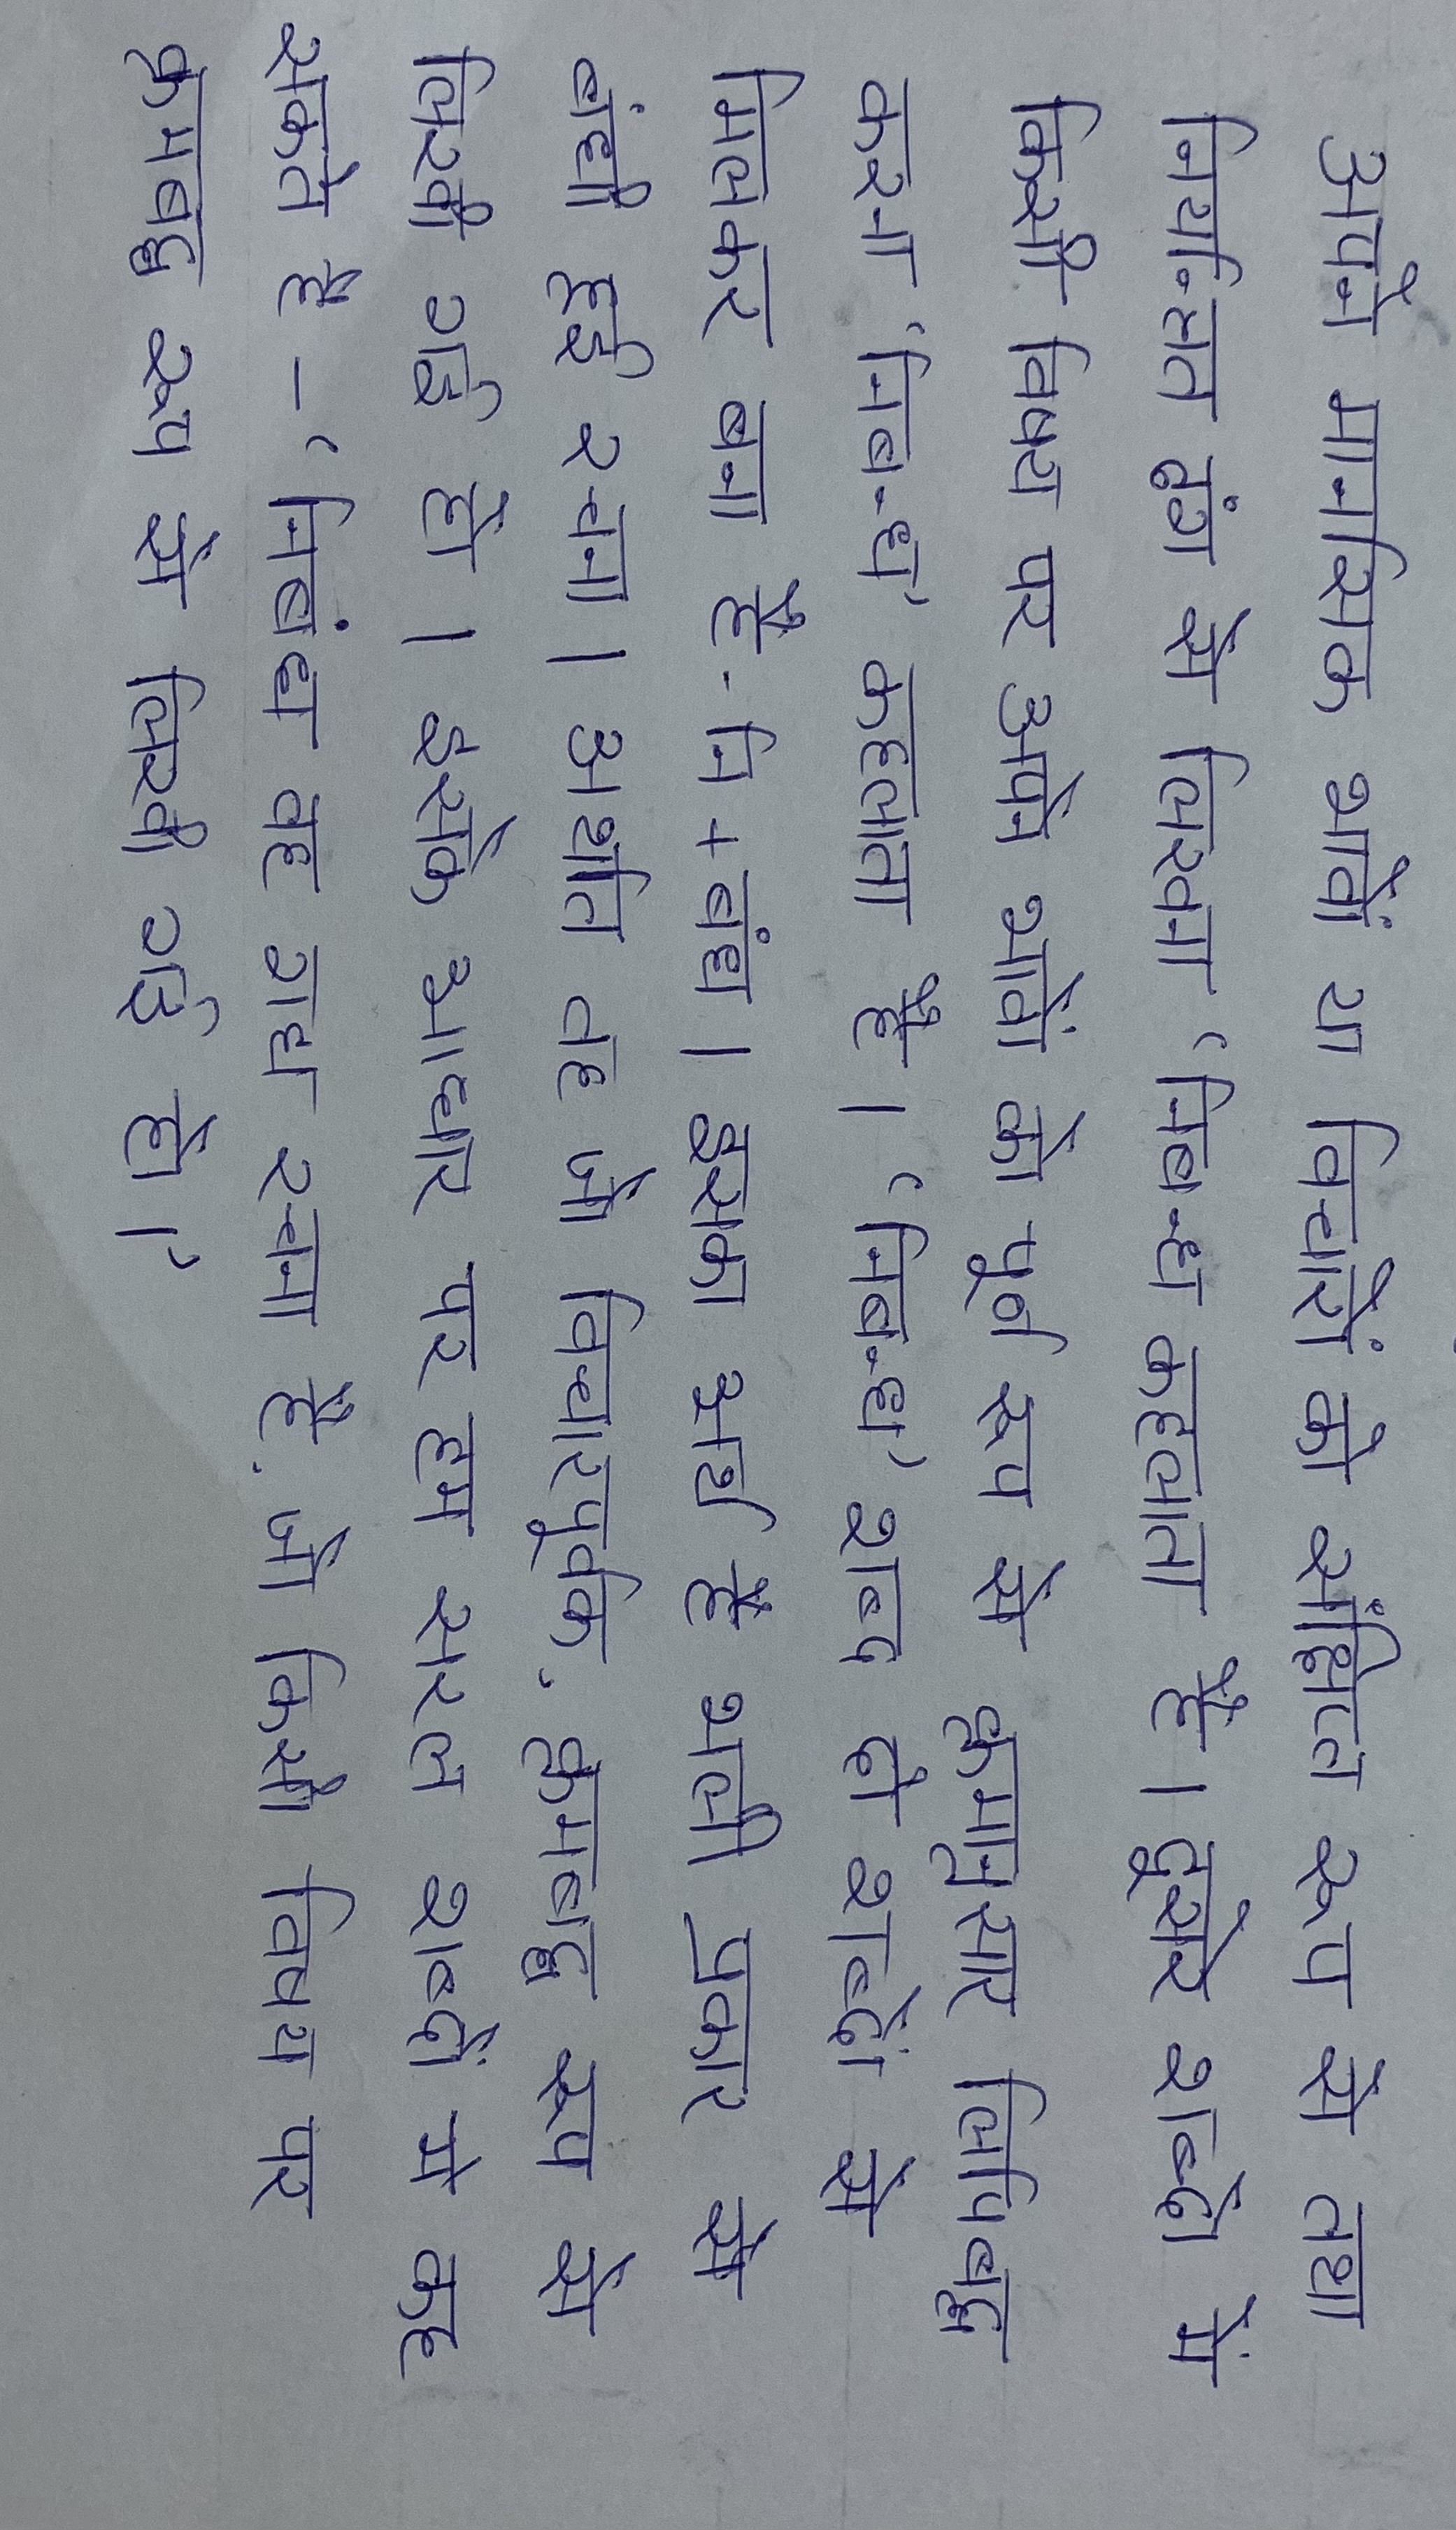 अपने मानसिक भावों या विचारों को संक्षिप्त रूप से तथा
नियन्त्रित ढंग से लिखना ‘निबन्ध कहलाता है। दूसरे शब्दो में
किसी विषय पर अपने भावों को पूर्ण रूप से क्रमानुसार लिपिबद्ध
करना ‘निबन्ध’ कहलाता है। ‘निबन्ध’ शब्द दो शब्दों से
मिलकर बना है- नि + बंध। इसका अर्थ है भली प्रकार से
बंधी हुई रचना। अर्थात वह जो विचारपूर्वक, क्रमबद्ध रूप से
लिखी गई हो। इसके आधार पर हम सरल शब्दों मे कह
सकते है – ‘निबंध वह गद्य रचना है, जो किसी विषय पर
क्रमबद्ध रूप से लिखी गई हो।’